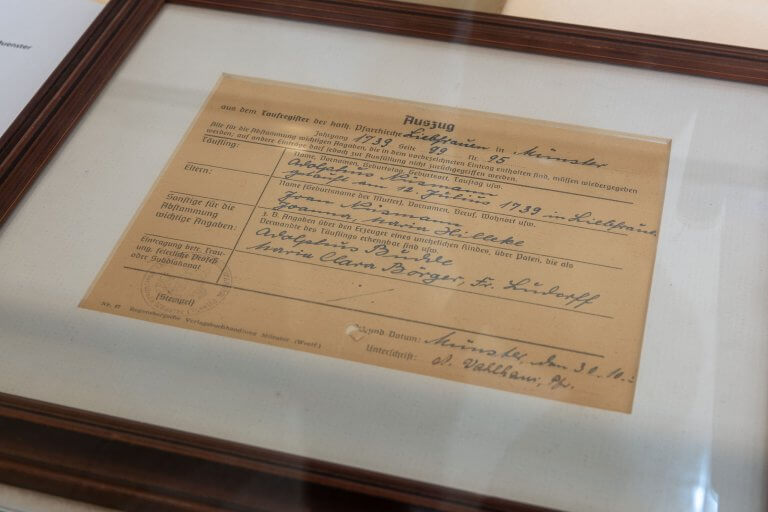 uenster
Auszug
aus dem Taufregister der kath. Pfarrkirche Liebfrauen in Münster
Jahrgang 1739 Seite 99 Nr. 95
Alle für die Abstammung wichtigen Angaben, die in dem vorbezeichneten Eintrag enthalten sind, müssen wiedergegeben
werden, auf andere Einträge darf jedoch zur Ausfüllung nicht zurückgegriffen werden.
Täufling:
Name, Vornamen, Geburtstag, Geburtsort, Tauftag usw.
Adolphus
getauft am 12. Julius 1739 in Liebfrauen
Eltern:
Name (Geburtsname der Mutter), Vornamen, Beruf, Wohnort usw.
Joan
Joanna, Maria Hilleke
Sonstige für die
Abstammung
wichtige Angaben:
z. B. Angaben über den Erzeuger eines unehelichen Kindes, über Paten, die als
Verwandte des Täuflings erkennbar sind usw.
Adolphus
Maria Clara Börger, Fr. Ludorff
Eintragung betr. Trau-
ung, feierliche Profeß
oder Subdiakonat
(Stempel)
und Datum: Münster, den 30. 10.
Unterschrift:
Nr. 17 Regensbergsche Verlagsbuchhandlung Münster (Westf.)